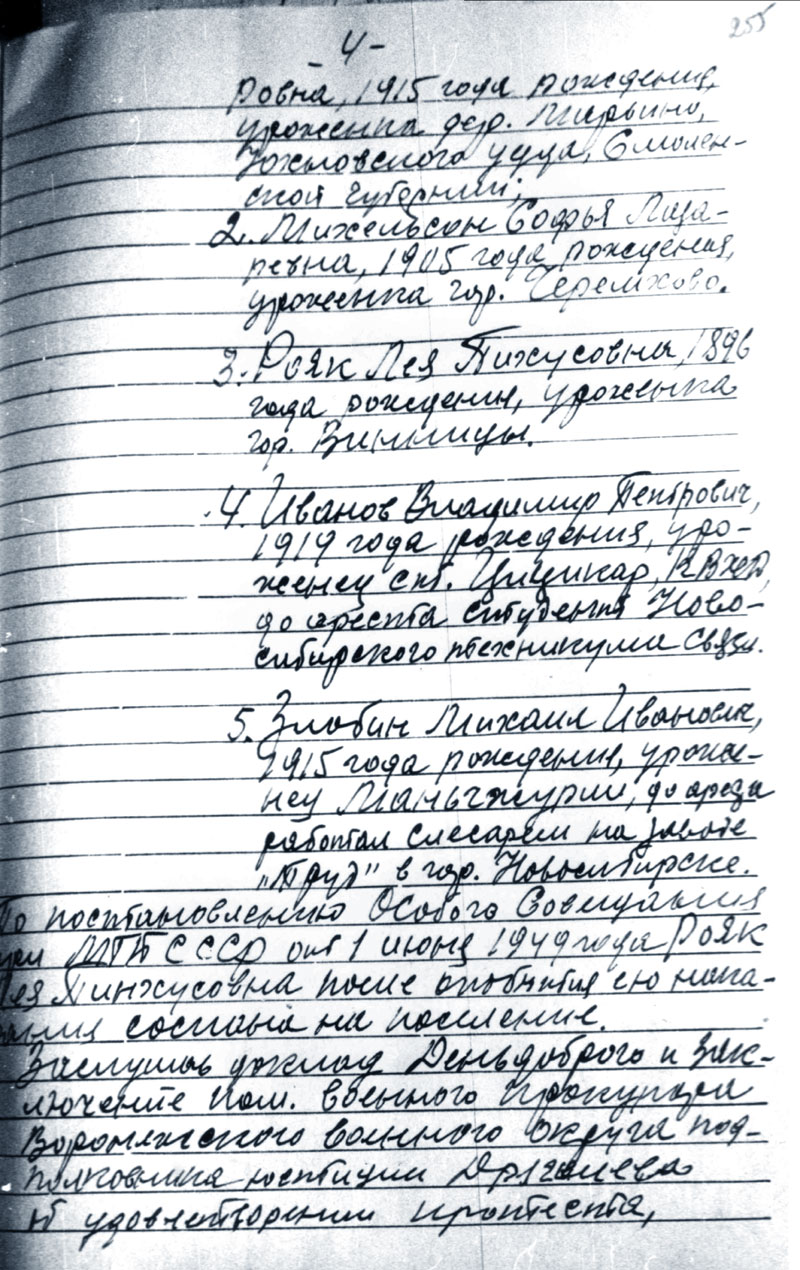 255
- 4 -
ровна, 1915 года рождения,
уроженка дер. Марьино,
Юхновского уезда, Смолен-
ской губернии;
2. Михельсон Софья Лаза-
ревна, 1905 года рождения,
уроженка гор. Черемхово.
3. Рояк Лея Пинхусовна, 1896
года рождения, уроженка
гор. Винницы.
4. Иванов Владимир Петрович,
1919 года рождения, уро-
женец ст. Цицикар, КВЖД,
до ареста студент Ново-
сибирского техникума связи.
5. Злобин Михаил Иванович,
1915 года рождения, уроже-
нец Маньчжурии, до ареста
работал слесарем на заводе
„Труд" в гор. Новосибирске.
По постановлению Особого Совещания
при МГБ СССР от 1 июня 1949 года Рояк
Лея Пинхусовна после отбытия ею нака-
зания сослана на поселение.
Заслушав доклад Деньдоброго и зак-
лючение пом. военного прокурора
Воронежского военного округа под-
полковника юстиции
об удовлетворении протеста,